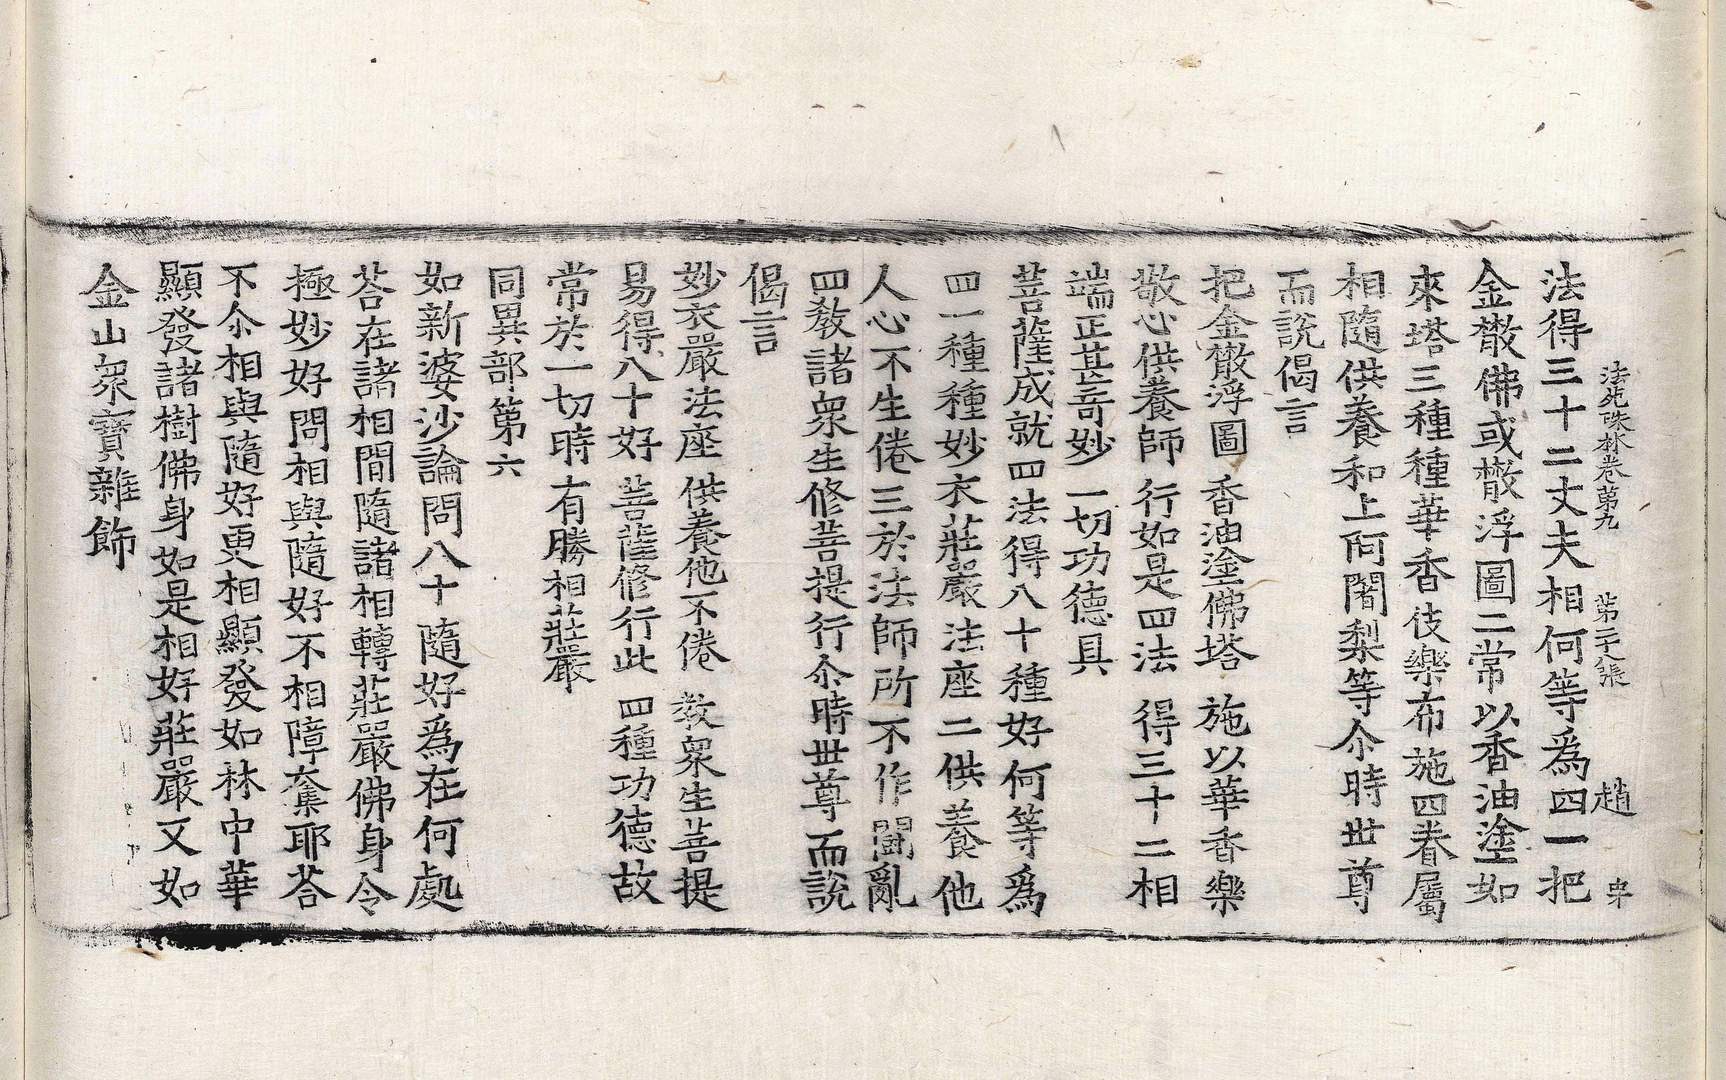 法苑珠林卷第九　第二張　趙　㓜
法得三十二丈夫相何等爲四一把
金㪚佛或㪚浮圖二常以香油塗如
來塔三種種華香伎樂布施四眷屬
相隨供養和上阿闍梨等尒時世尊
而說偈言
把金㪚浮圖　香油塗佛塔　施以華香樂
敬心供養師　行如是四法　得三十二相
端正甚奇妙　一切功德具
菩薩成就四法得八十種好何等爲
四一種種妙衣莊嚴法座二供養他
人心不生倦三於法師所不作鬪亂
四教諸衆生修菩提行尒時世尊而說
偈言
妙衣嚴法座　供養他不倦　教衆生菩提
易得八十好　菩薩修行此　四種功德故
常於一切時　有勝相莊嚴
同異部第六
如新婆沙論問八十隨好爲在何處
荅在諸相間隨諸相轉莊嚴佛身令
極妙好問相與隨好不相障奪耶荅
不尒相與隨好更相顯發如林中華
顯發諸樹佛身如是相好莊嚴又如
金山衆寶雜飾